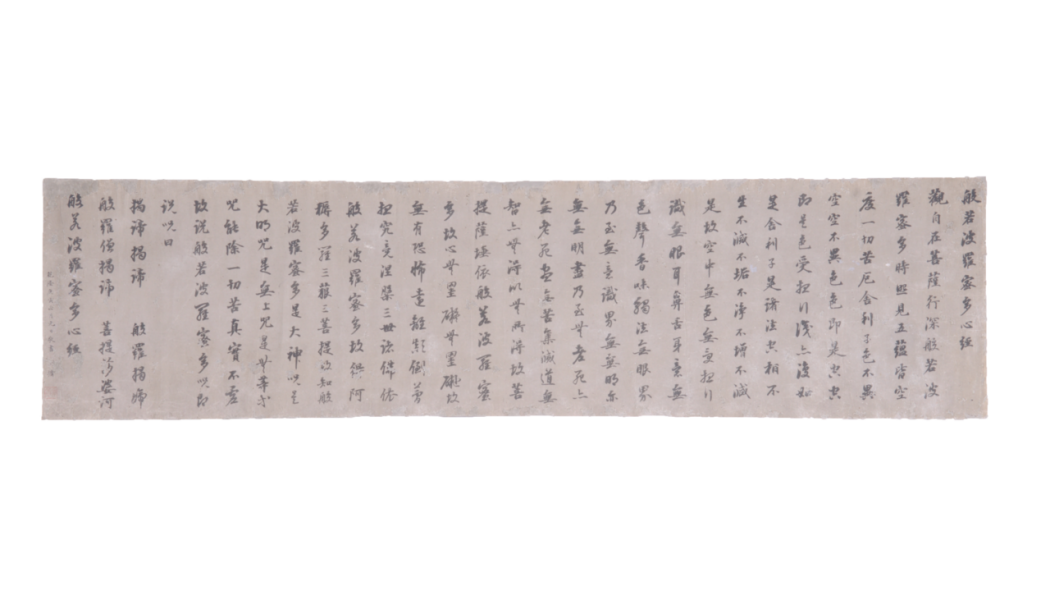 般若波羅蜜多心經
觀自在菩薩行深般若波
羅蜜多時照見五蘊皆空
度一切苦厄舍利子色不異
空空不異色色即是空空
即是色受想行識亦復如
是舍利子是諸法空相不
生不滅不垢不淨不增不減
是故空中無色無受想行
識無眼耳鼻舌身意無
色聲香味觸法無眼界
乃至無意識界無無明亦
無無明盡乃至無老死亦
無老死盡無苦集滅道無
智亦無得以無所得故菩
提薩埵依般若波羅蜜
多故心無罣礙無罣礙故
無有恐怖遠離顛倒夢
想究竟涅槃三世諸佛依
般若波羅蜜多故得阿
耨多羅三藐三菩提故知般
若波羅蜜多是大神咒是
大明咒是無上咒是無等等
咒能除一切苦真實不虛
故說般若波羅蜜多咒即
說咒曰
揭諦揭諦 般羅揭諦
般羅僧揭諦 菩提莎婆訶
般若波羅蜜多心經